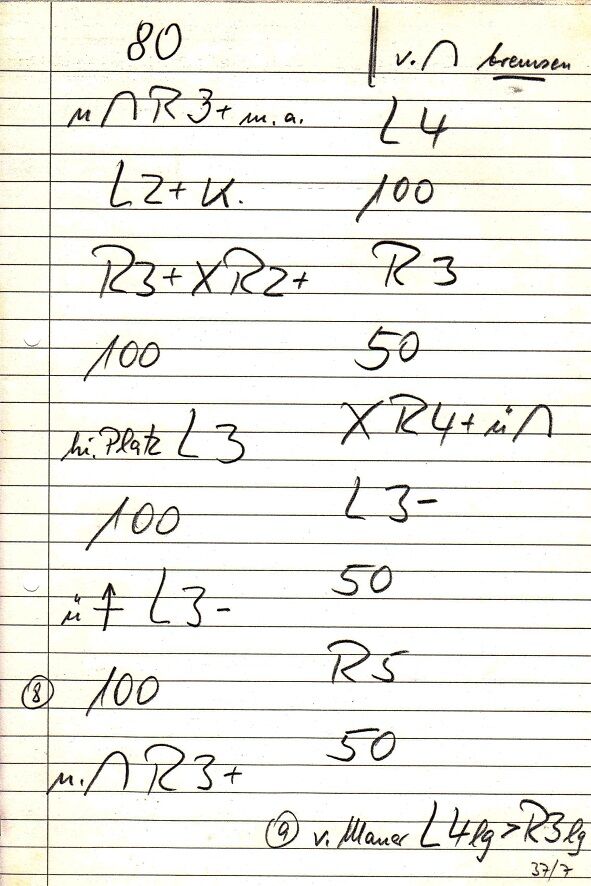 80
n ∩ R3+ m.a.
L2+ K.
R3+ X R2+
100
hi. Platz L3
100
ü ↑ L3-
⑧ 100
n. ∩ R3+
v. ∩ bremsen
L4
100
R3
50
X R4+ ü ∩
L3-
50
R5
50
⑨ v. Mauer L4lg > R3lg
37/7